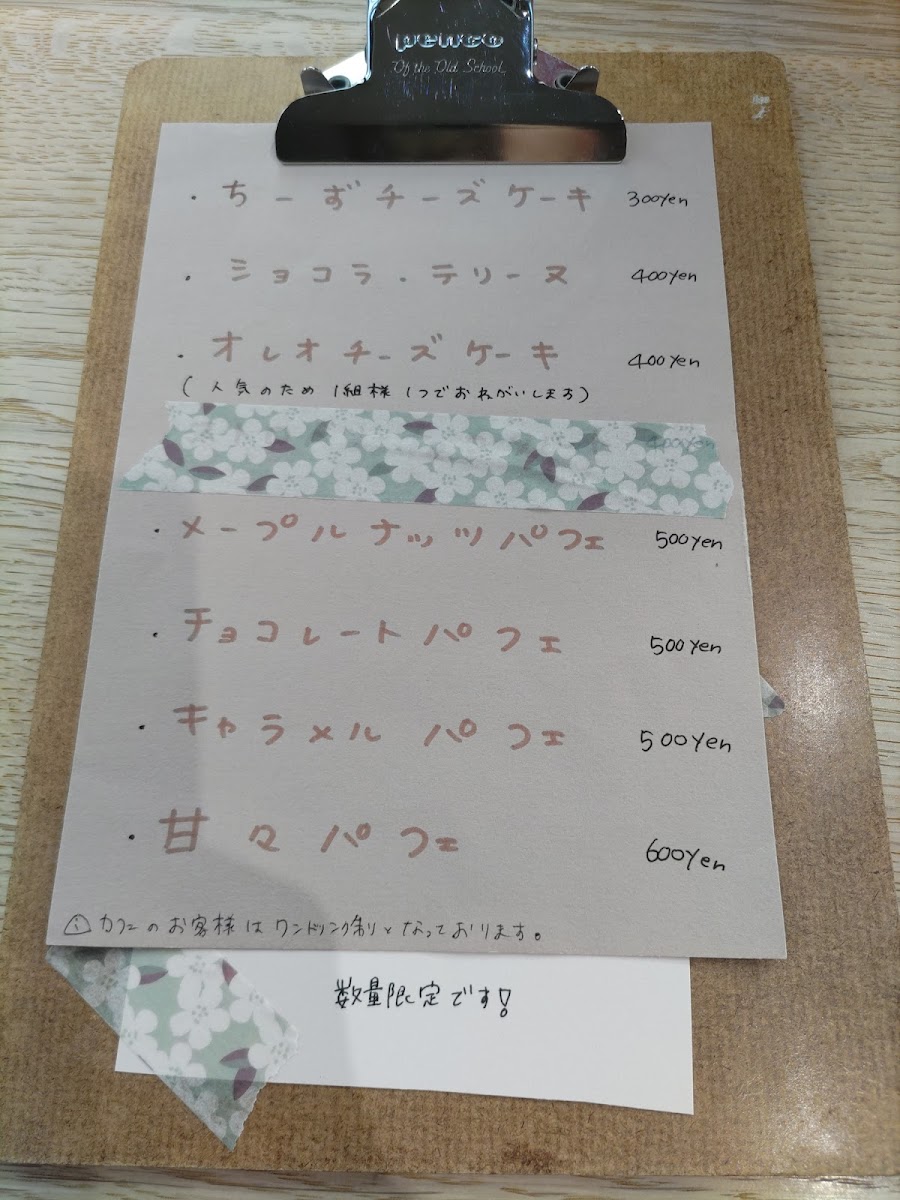 penco
Of the Old School
・ちーずチーズケーキ 300yen
・ショコラ・テリーヌ 400yen
・オレオチーズケーキ 400yen
(人気のため1組様1つでおねがいします)
・メープルナッツパフェ 500yen
・チョコレートパフェ 500yen
・キャラメルパフェ 500yen
・甘々パフェ 600yen
カフェのお客様はワンドリンク制となっております。
数量限定です!